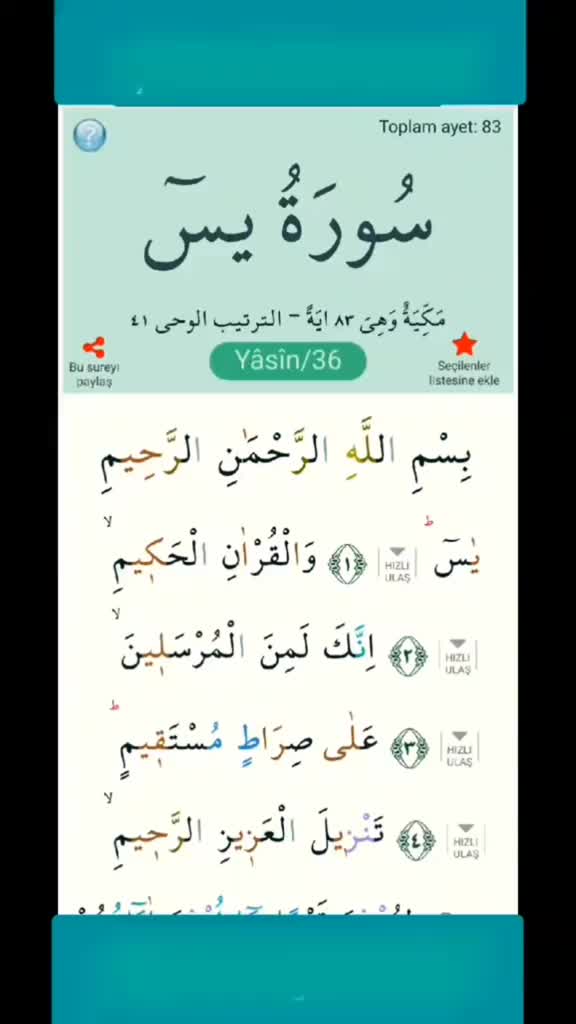 Toplam ayet: 83
سُورَةُ يسٓ
مَكِّيَةٌ وَهِىَ ٨٣ ايَةً - الترتيب الوحى ٤١
Bu sureyi paylaş
Yâsîn/36
Seçilenler listesine ekle
بِسْمِ اللَّهِ الرَّحْمٰنِ الرَّحِيمِ
يٰسٓ ۜ HIZLI ULAŞ ﴿١﴾ وَالْقُرْاٰنِ الْحَكِيمِ ۙ
HIZLI ULAŞ ﴿٢﴾ اِنَّكَ لَمِنَ الْمُرْسَلِينَ ۙ
HIZLI ULAŞ ﴿٣﴾ عَلٰى صِرَاطٍ مُسْتَقِيمٍ ط
HIZLI ULAŞ ﴿٤﴾ تَنْزِيلَ الْعَزِيزِ الرَّحِيمِ ۙ